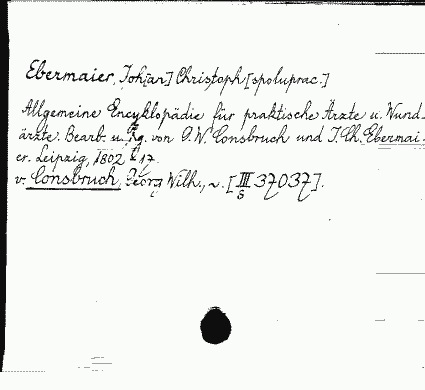 Ebermaier, Joh[an] Christoph [spoluprac.]
Allgemeine Encyklopädie für praktische Ärzte u. Wund-
ärzte. Bearb. u. hg. von G. W. Consbruch und J. Ch. Ebermai-
er. Leipzig, 1802
v. Consbruch, Georg Wilh., [III 37037].